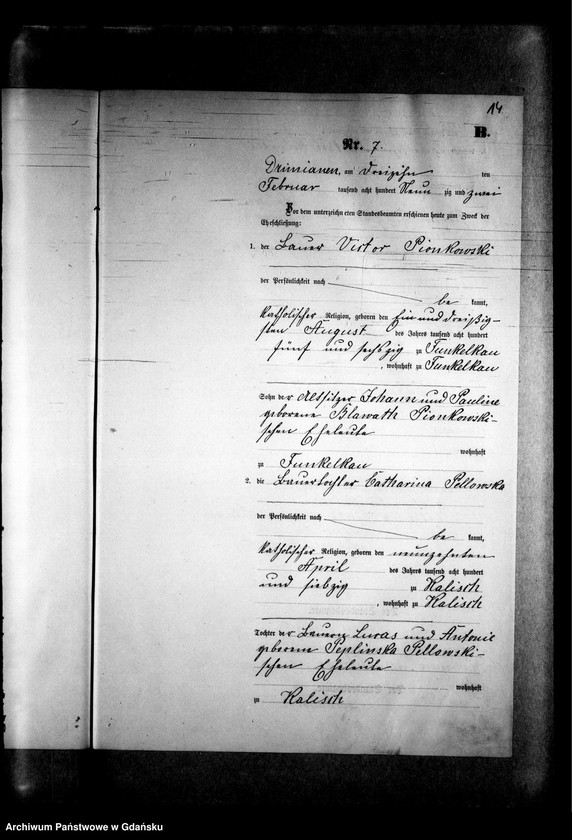 14
B.
Nr. 7.
Dzimianen, am dreizehn ten
Februar tausend acht hundert Neun zig und zwei
Vor dem unterzeichneten Standesbeamten erschienen heute zum Zweck der
Eheschließung:
1. der Bauer Victor Pionkowski
der Persönlichkeit nach
be kannt,
katholischer Religion, geboren den ein und dreißig-
sten August des Jahres tausend acht hundert
fünf und sechszig zu Funkelkau
, wohnhaft zu Funkelkau
Sohn der Altsitzer Johann und Pauline
geborene Blawath Pionkowski-
schen Eheleute
wohnhaft
zu Funkelkau
2. die Bauertochter Catharina Pellowska
der Persönlichkeit nach
be kannt,
katholischer Religion, geboren den neunzehnten
April des Jahres tausend acht hundert
und siebzig zu Kalisch
, wohnhaft zu Kalisch
Tochter der Bauer Lucas und Antonie
geborene Peplinska Pellowski-
schen Eheleute
wohnhaft
zu Kalisch
Archiwum Państwowe w Gdańsku